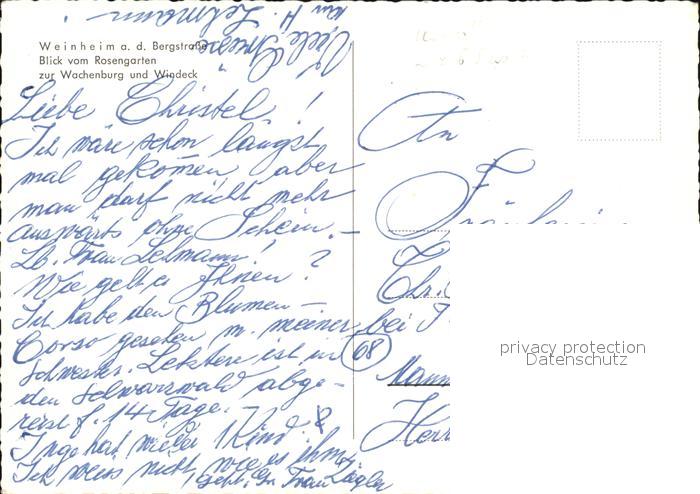 Weinheim a. d. Bergstraße
Blick vom Rosengarten
zur Wachenburg und Windeck
Liebe Christel!
Ich wäre schon längst
mal gekom̄en, aber
man darf nicht mehr
auswärts ohne Schein. –
Lb. Frau Lehmann!
Wie geht es Ihnen?
Ich habe den Blumen–
Corso gesehen m. meiner
Schwester. Letztere ist in
den Schwarzwald abge-
reist f. 14 Tage. –
Inge hat wieder 1 Kind. &
Ich weiss nicht, wie es ihm
geht. Gr. Frau
Viele Grüsse
Lehmann
An
Fräulein
Chr.
bei
68
Mann
Herr
privacy protection
Datenschutz